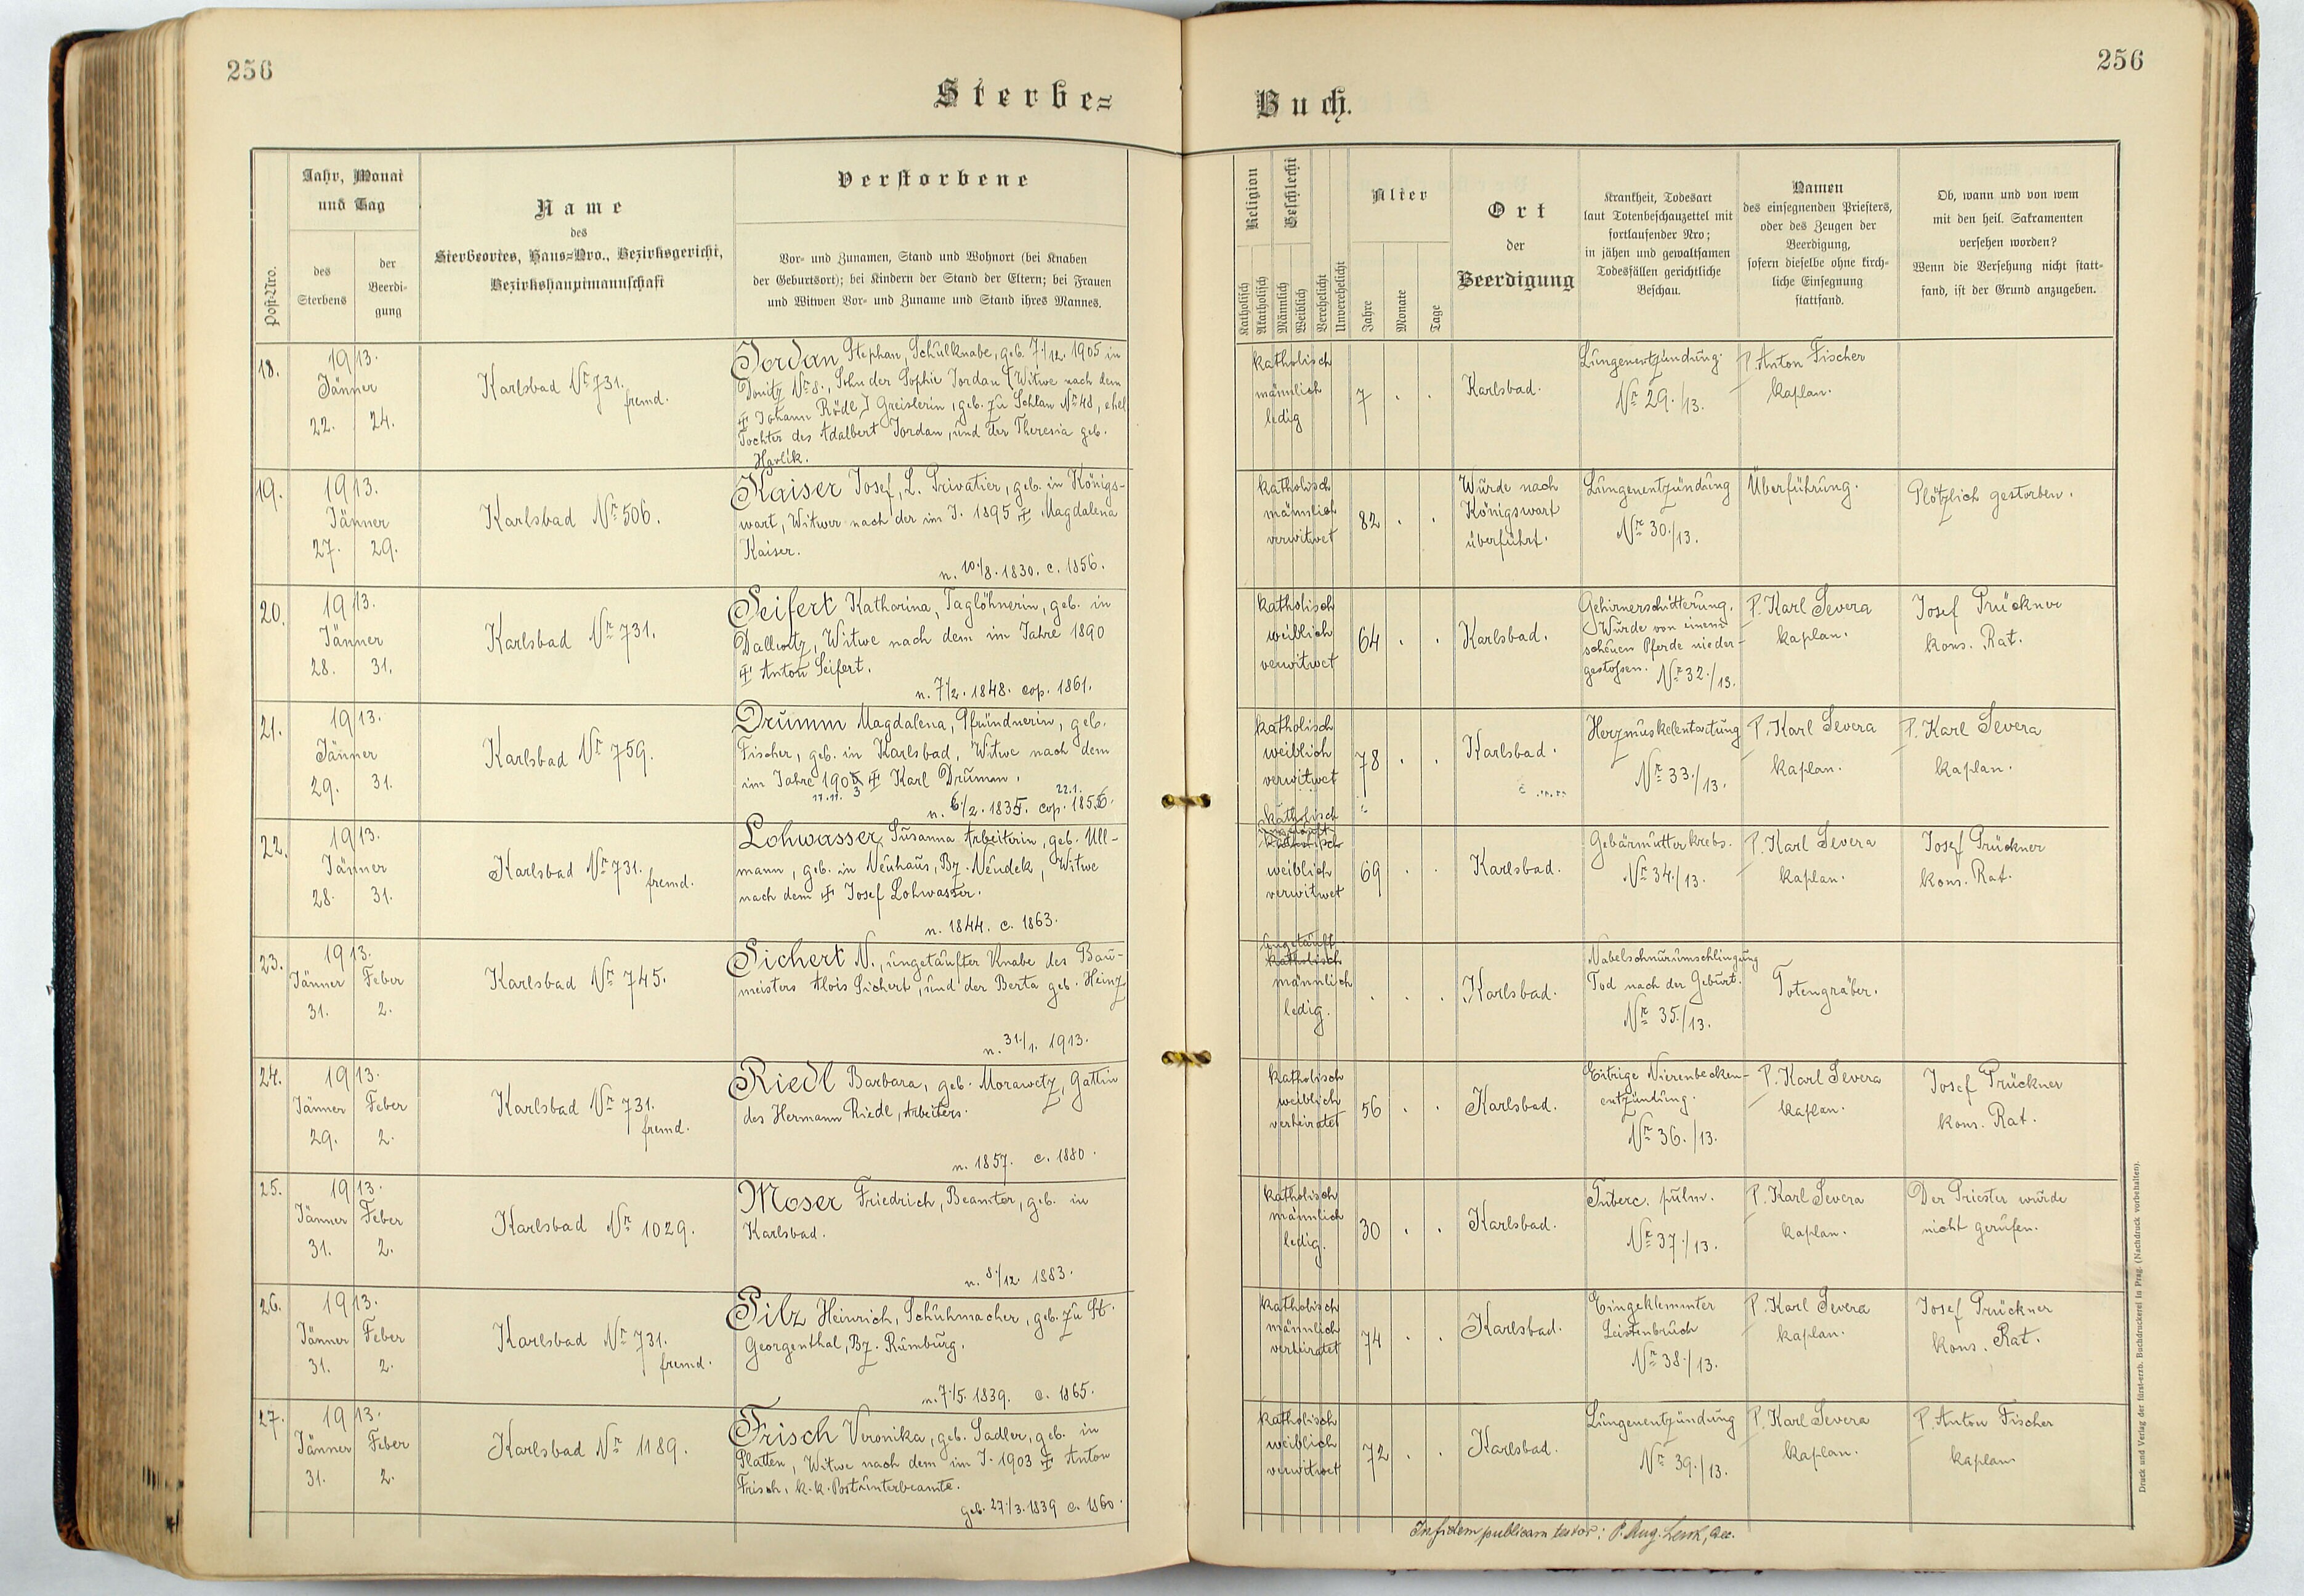 256
Sterbe=
Jahr, Monat
und Tag
Post-Nro.
des
Sterbens
der
Beerdi-
gung
Name
des
Sterbeortes, Haus=Nro., Bezirksgericht,
Bezirkshauptmannschaft
Verstorbene
Vor- und Zunamen, Stand und Wohnort (bei Knaben
der Geburtsort); bei Kindern der Stand der Eltern; bei Frauen
und Witwen Vor- und Zuname und Stand ihres Mannes.
18.
1913.
Jänner
22. 24.
Karlsbad Nr 731.
fremd.
Jordan Stephan, Schulknabe, geb. 7./12. 1905 in
Donitz Nr 8., Sohn der Sophie Jordan (Witwe nach dem
† Johann Rödl) Greislerin, geb. zu Schlan Nr 48, ehel.
Tochter des Adalbert Jordan, und der Theresia geb.
Havlik.
19.
1913.
Jänner
27. 29.
Karlsbad Nr 506.
Kaiser Josef, L. Privatier, geb. in Königs-
wart, Witwer nach der im J. 1895 † Magdalena
Kaiser.
n. 10./8. 1830. c. 1856.
20.
1913.
Jänner
28. 31.
Karlsbad Nr 731.
Seifert Katharina, Taglöhnerin, geb. in
Dallwitz, Witwe nach dem im Jahre 1890
† Anton Seifert.
n. 7./2. 1848. cop. 1861.
21.
1913.
Jänner
29. 31.
Karlsbad Nr 759.
Drumm Magdalena, Pfründnerin, geb.
Fischer, geb. in Karlsbad, Witwe nach dem
im Jahre 1903 † Karl Drumm.
17.11. 3 22.1.
n. 6./2. 1835. cop. 1856.
22.
1913.
Jänner
28. 31.
Karlsbad Nr 731.
fremd.
Lohwasser, Susanna Arbeiterin, geb. Ull-
mann, geb. in Neuhaus, Bz. Neudek, Witwe
nach dem † Josef Lohwasser.
n. 1844. c. 1863.
23.
1913.
Jänner Feber
31. 2.
Karlsbad Nr 745.
Sichert N., ungetaufter Knabe des Bau-
meisters Alois Sichert, und der Berta geb. Heinz
n. 31./1. 1913.
24.
1913.
Jänner Feber
29. 2.
Karlsbad Nr 731.
fremd.
Riedl Barbara, geb. Morawetz, Gattin
des Hermann Riedl, Arbeiters.
n. 1857. c. 1880.
25.
1913.
Jänner Feber
31. 2.
Karlsbad Nr 1029.
Moser Friedrich, Beamter, geb. in
Karlsbad.
n. 8./12. 1883.
26.
1913.
Jänner Feber
31. 2.
Karlsbad Nr 731.
fremd.
Pilz Heinrich, Schuhmacher, geb. zu St.
Georgenthal, Bz. Rumburg.
n. 7./5. 1839. c. 1865.
27.
1913.
Jänner Feber
31. 2.
Karlsbad Nr 1189.
Frisch Veronika, geb. Sadler, geb. in
Platten, Witwe nach dem im J. 1903 † Anton
Frisch, k. k. Postunterbeamte.
geb. 27./3. 1839 c. 1860.
256
Buch.
Religion
Geschlecht
Katholisch
Akatholisch
Männlich
Weiblich
Verehelicht
Unverehelicht
Alter
Jahre
Monate
Tage
Ort
der
Beerdigung
Krankheit, Todesart
laut Totenbeschauzettel mit
fortlaufender Nro;
in jähen und gewaltsamen
Todesfällen gerichtliche
Beschau.
Namen
des einsegnenden Priesters,
oder des Zeugen der
Beerdigung,
sofern dieselbe ohne kirch-
liche Einsegnung
stattfand.
Ob, wann und von wem
mit den heil. Sakramenten
versehen worden?
Wenn die Versehung nicht statt=
fand, ist der Grund anzugeben.
katholisch
männlich
ledig
7 . .
Karlsbad.
Lungenentzündung.
Nr 29./13.
P. Anton Fischer
kaplan.
katholisch
männlich
verwitwet
82 . .
Wurde nach
Königswart
überführt.
Lungenentzündung
Nr 30./13.
Überführung.
Plötzlich gestorben.
katholisch
weiblich
verwitwet
64 . .
Karlsbad.
Gehirnerschütterung.
Wurde von einem
scheuen Pferde nieder-
gestoßen. Nr 32./13.
P. Karl Severa
kaplan.
Josef Prückner
kons. Rat.
katholisch
weiblich
verwitwet
78 . .
Karlsbad.
Herzmuskelentartung
Nr 33./13.
P. Karl Severa
kaplan.
P. Karl Severa
kaplan.
katholisch
ungetauft
katholisch
weiblich
verwitwet
69 . .
Karlsbad.
Gebärmutterkrebs.
Nr 34./13.
P. Karl Severa
kaplan.
Josef Prückner
kons. Rat.
ungetauft
katholisch
männlich
ledig.
. . .
Karlsbad.
Nabelschnurumschlingung
Tod nach der Geburt.
Nr 35./13.
Totengräber.
katholisch
weiblich
verheiratet
56 . .
Karlsbad.
Eitrige Nierenbecken-
entzündung.
Nr 36./13.
P. Karl Severa
kaplan.
Josef Prückner
kons. Rat.
katholisch
männlich
ledig.
30 . .
Karlsbad.
Tuberc. pulm.
Nr 37./13.
P. Karl Severa
kaplan.
Der Priester wurde
nicht gerufen.
katholisch
männlich
verheiratet
74 . .
Karlsbad.
Eingeklemmter
Leistenbruch
Nr 38./13.
P. Karl Severa
kaplan.
Josef Prückner
kons. Rat.
katholisch
weiblich
verwitwet
72 . .
Karlsbad.
Lungenentzündung
Nr 39./13.
P. Karl Severa
kaplan.
P. Anton Fischer
kaplan
In fidem publicam testor: P. Aug.
Druck und Verlag der fürst-erzb. Buchdruckerei in Prag. (Nachdruck vorbehalten).